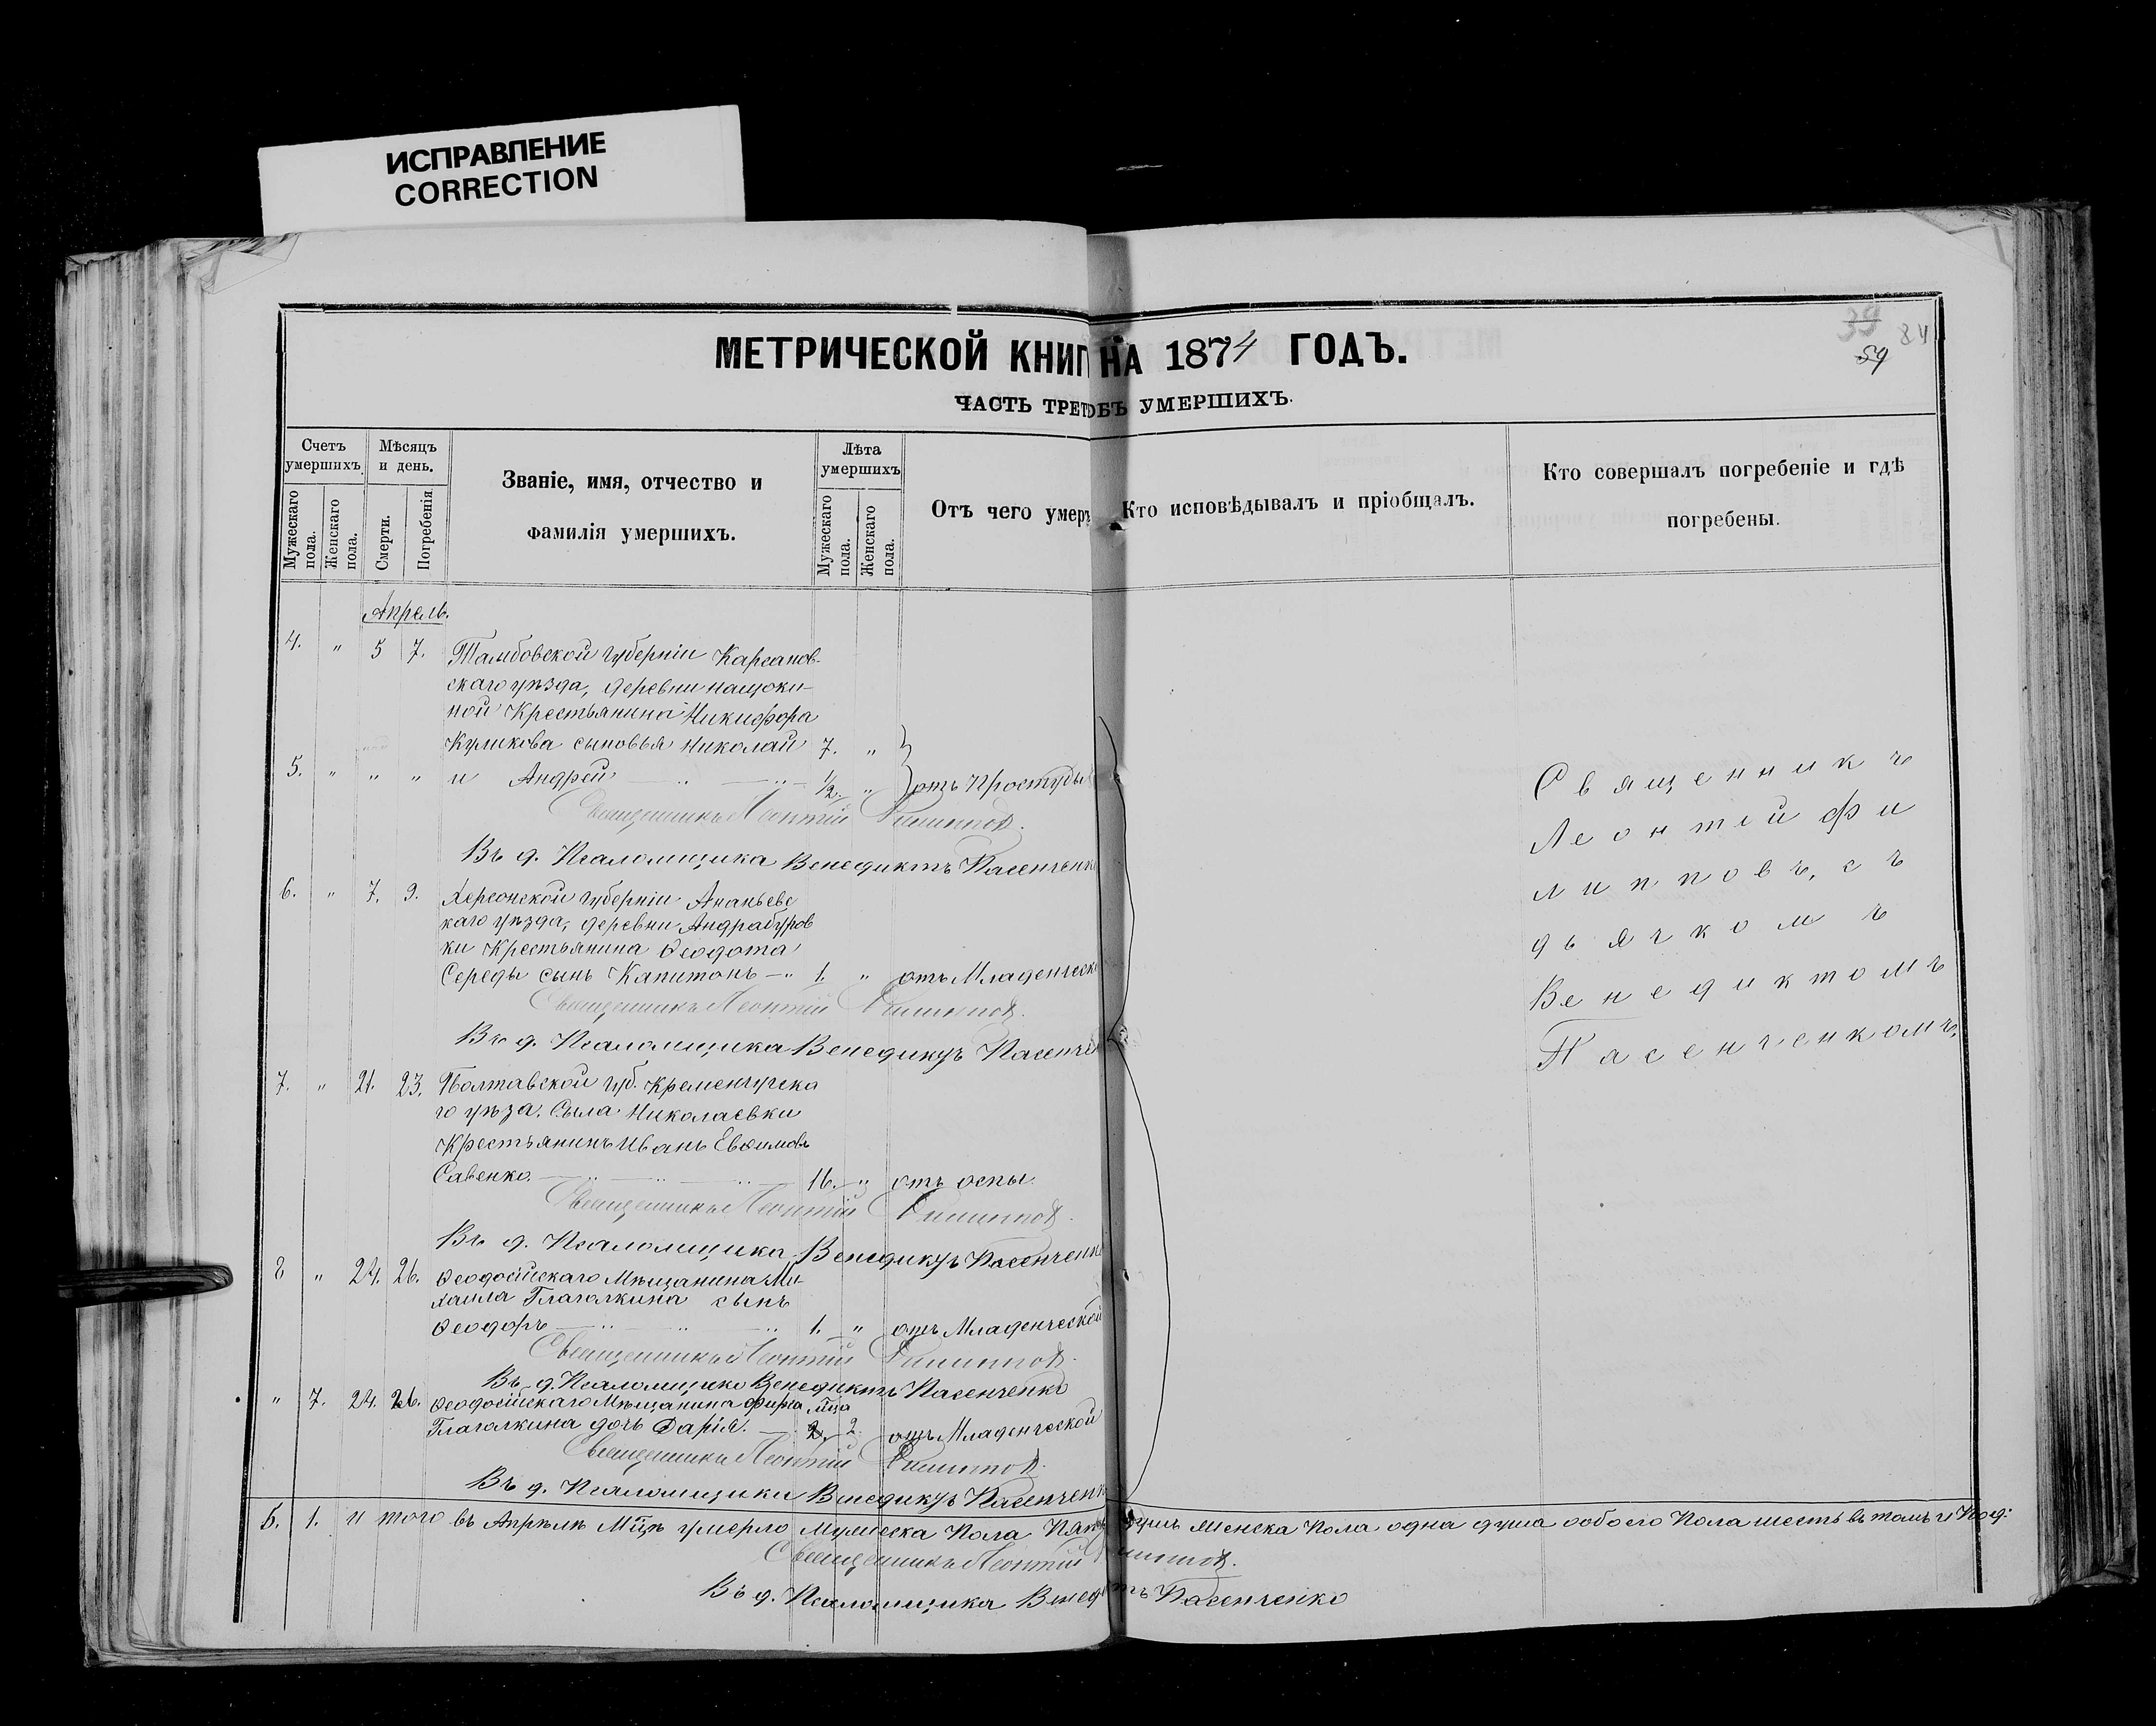 ИСПРАВЛЕНИЕ
CORRECTION
39 84
59
МЕТРИЧЕСКОЙ КНИГ НА 1874 ГОДЪ.
ЧАСТЬ ТРЕТ ОБЪ УМЕРШИХЪ.
Счетъ умершихъ.
Мужескаго пола.
Женскаго пола.
Мѣсяцъ и день.
Смерти.
Погребенія.
Званіе, имя, отчество и
фамилія умершихъ.
Лѣта умершихъ
Мужескаго пола.
Женскаго пола.
Отъ чего умеръ
Кто исповѣдывалъ и пріобщалъ.
Кто совершалъ погребеніе и гдѣ
погребены.
Апрель.
4. " 5 7. Тамбовской губерніи Карсанов-
скаго уѣзда, деревни нащоки-
ной Крестьянина Никифора
Куликова сыновья Николай 7. "
5. " " " и Андрей 1/2. " отъ Простуды
Священникъ Леонтій Филиппов.
Въ д. Псаломщика Венедиктъ Пасенченк
6. " 7. 9. Херсонской губерніи Ананьевс
каго уѣзда, деревни Андрабуров
ки Крестьянина Ѳеодота
Середы сынъ Капитонъ 1. " отъ Младенческ
Священникъ Леонтій Филиппов.
Въ д. Псаломщика Венедиктъ Пасенче
7. " 21. 23. Полтавской губ. Кременчугска
го уѣза. Сыла Николаевки
Крестьянинъ Иванъ Евѳимовъ
Савенко. 16. " отъ оспы.
Священникъ Леонтій Филиппов.
Въ д. Псаломщика Венедиктъ Пасенченк
8 " 24. 26. Ѳеодосійскаго Мѣщанина Ми-
хаила Глаголкина сынъ
Ѳеодоръ 1. " отъ Младенческой
Священникъ Леонтій Филиппов.
Въ д. Псаломщика Венедиктъ Пасенченко
" 7. 24. 26. Ѳеодосійскаго Мѣщанина Фирса мца
Глаголкина дочь Дарія. 2. 2. отъ Младенческой
Священникъ Леонтій Филиппов.
Въ д. Псаломщика Венедиктъ Пасенчен
Священникъ
Леонтій Фи
липповъ, съ
дьячкомъ
Венедиктомъ
Пасенченкомъ.
5. 1. и того въ Апрѣлѣ Мцѣ умерло Мужеска Пола Пять душъ Женска Пола одна душа обоего Пола шесть въ томъ
Священникъ Леонтій Филиппов.
Въ д. Псаломщика Венед тъ Пасенченко